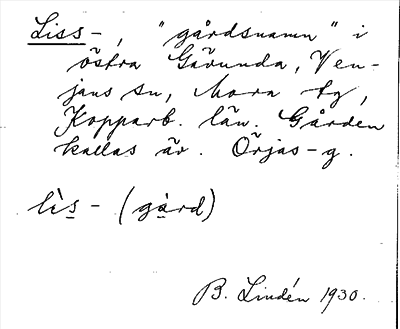 Liss-, "gårdsnamn" i
östra Gävunda, Ven-
jans sn, Mora tg,
Kopparb. län. Gården
kallas äv. Örjas-g.
lìs - (gàrd)
B. Lindén 1930.